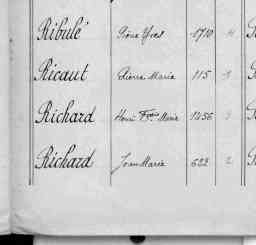 Ribulé Yves 1710 4
Ricaut Pierre Marie 115 1
Richard Henri Marie 1456 3
Richard Jean Marie 622 2